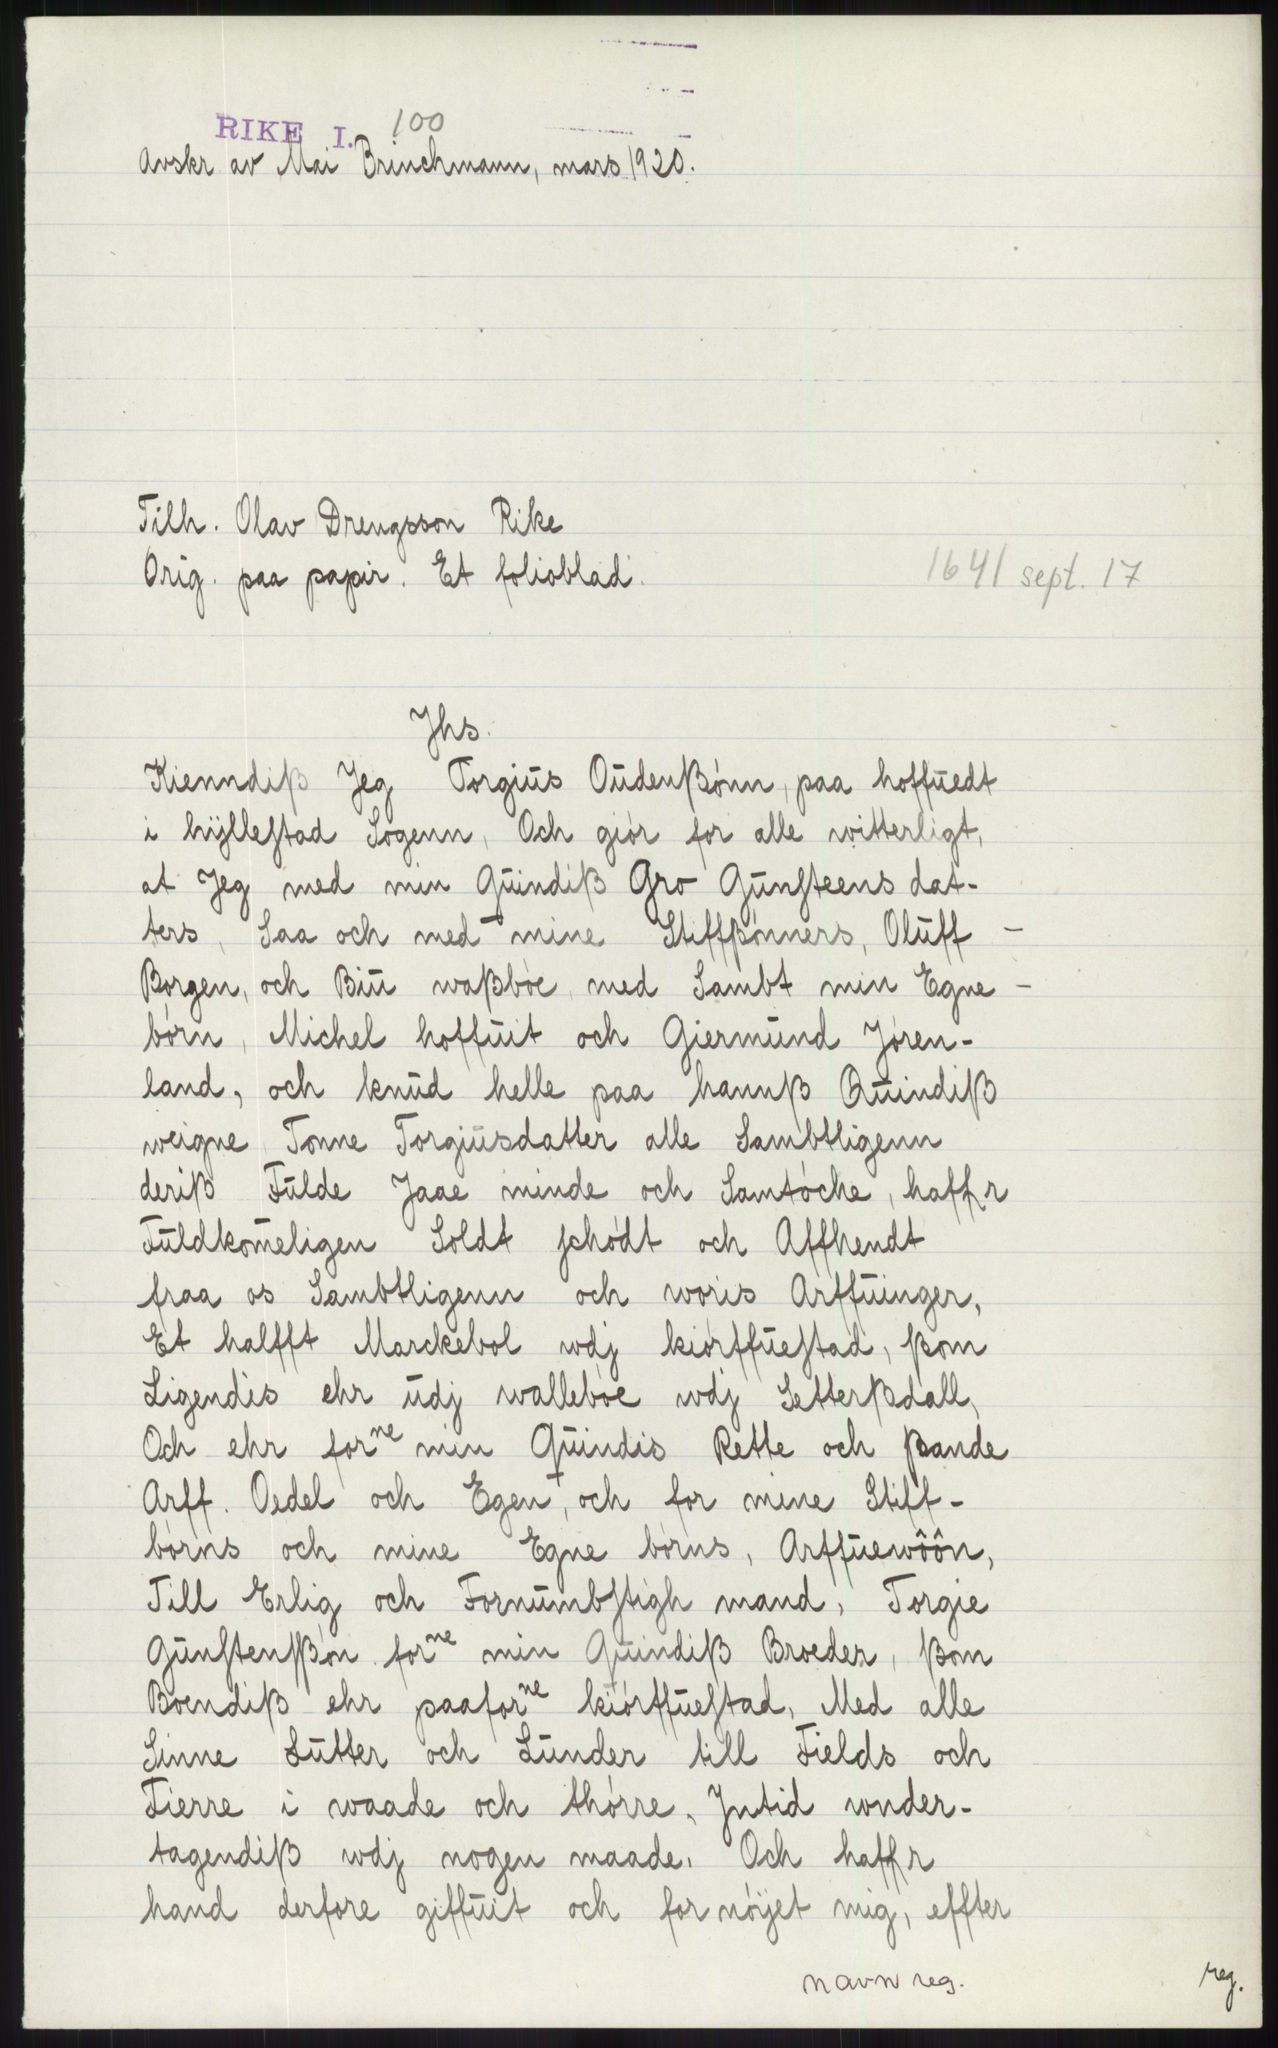 RIKE I. 100
Avskr av Mai Brinchmann, mars 1920.
Tilh. Olav Drengsson Rike
Orig. paa papir. Et folioblad.
1641 sept. 17
Jhs.
Kienndiß Jeg Torgiüs Oüdenßónn, paa hoffüedt
i hÿlleſtad Sogenn, Och giór for alle witterligt,
at Jeg med min Qüindiß Gro Günſteens dat-
ters, Saa och med mine Stiffßónners, Olüff -
Borgen, och Biü waßbóe med Sambt min Egne -
bórn, Michel hoffüit och Giermünd Jóren-
land, och knüd helle paa hannß Qüindiß
weigne Tonne Torgiüsdatter alle Sambtligenn
deriß Fülde Jaae minde och Samtóche, haffr
Füldkom̄eligen Soldt ſchódt och Affhendt
fraa os Sambtligenn och woris Arffüinger,
Et halfft Marckebol wdj kiórffüeſtad, ßom
Ligendis ehr üdj wallebóe wdj Setterßdall,
Och ehr forⁿᵉ min Qüindis Rette och ßande
Arff. Oedel och Egen, och for mine Stiff-
bórns och mine Egne bórns, Arffüewôôn,
Till Erlig och Fornümbſtigh mand, Torgie
Günſtenſßón forⁿᵉ min Qüindiß Broeder, ßom
Boendiß ehr paaforⁿᵉ kiórffüeſtad, Med alle
Sinne Lutter och Lünder till Fields och
Fierre i waade och thórre, Jntid wnder-
tagendiß wdj nogen maade. Och haffr
hand derfore giffüit och fornóÿet mig, effter
navn reg.
reg.